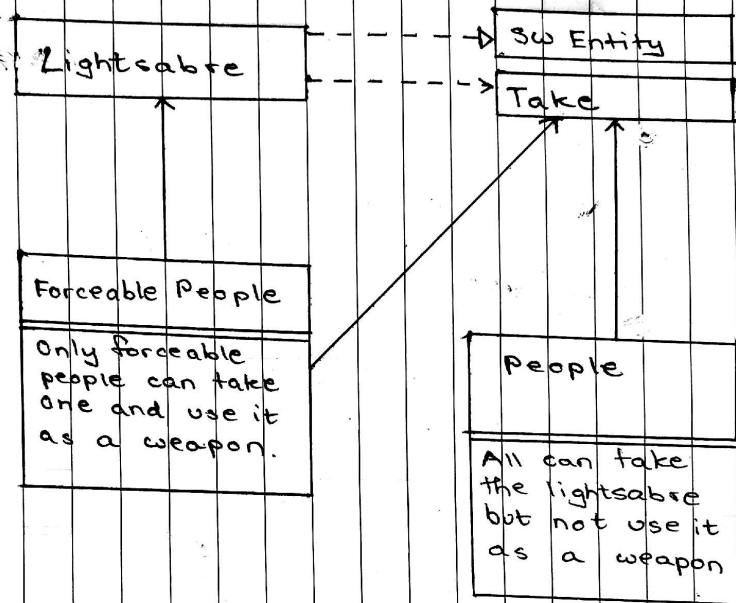 Lightsabre
SW Entity
Take
Forceable People
Only forceable
people can take
one and use it
as a weapon.
People
All can take
the lightsabre
but not use it
as a weapon